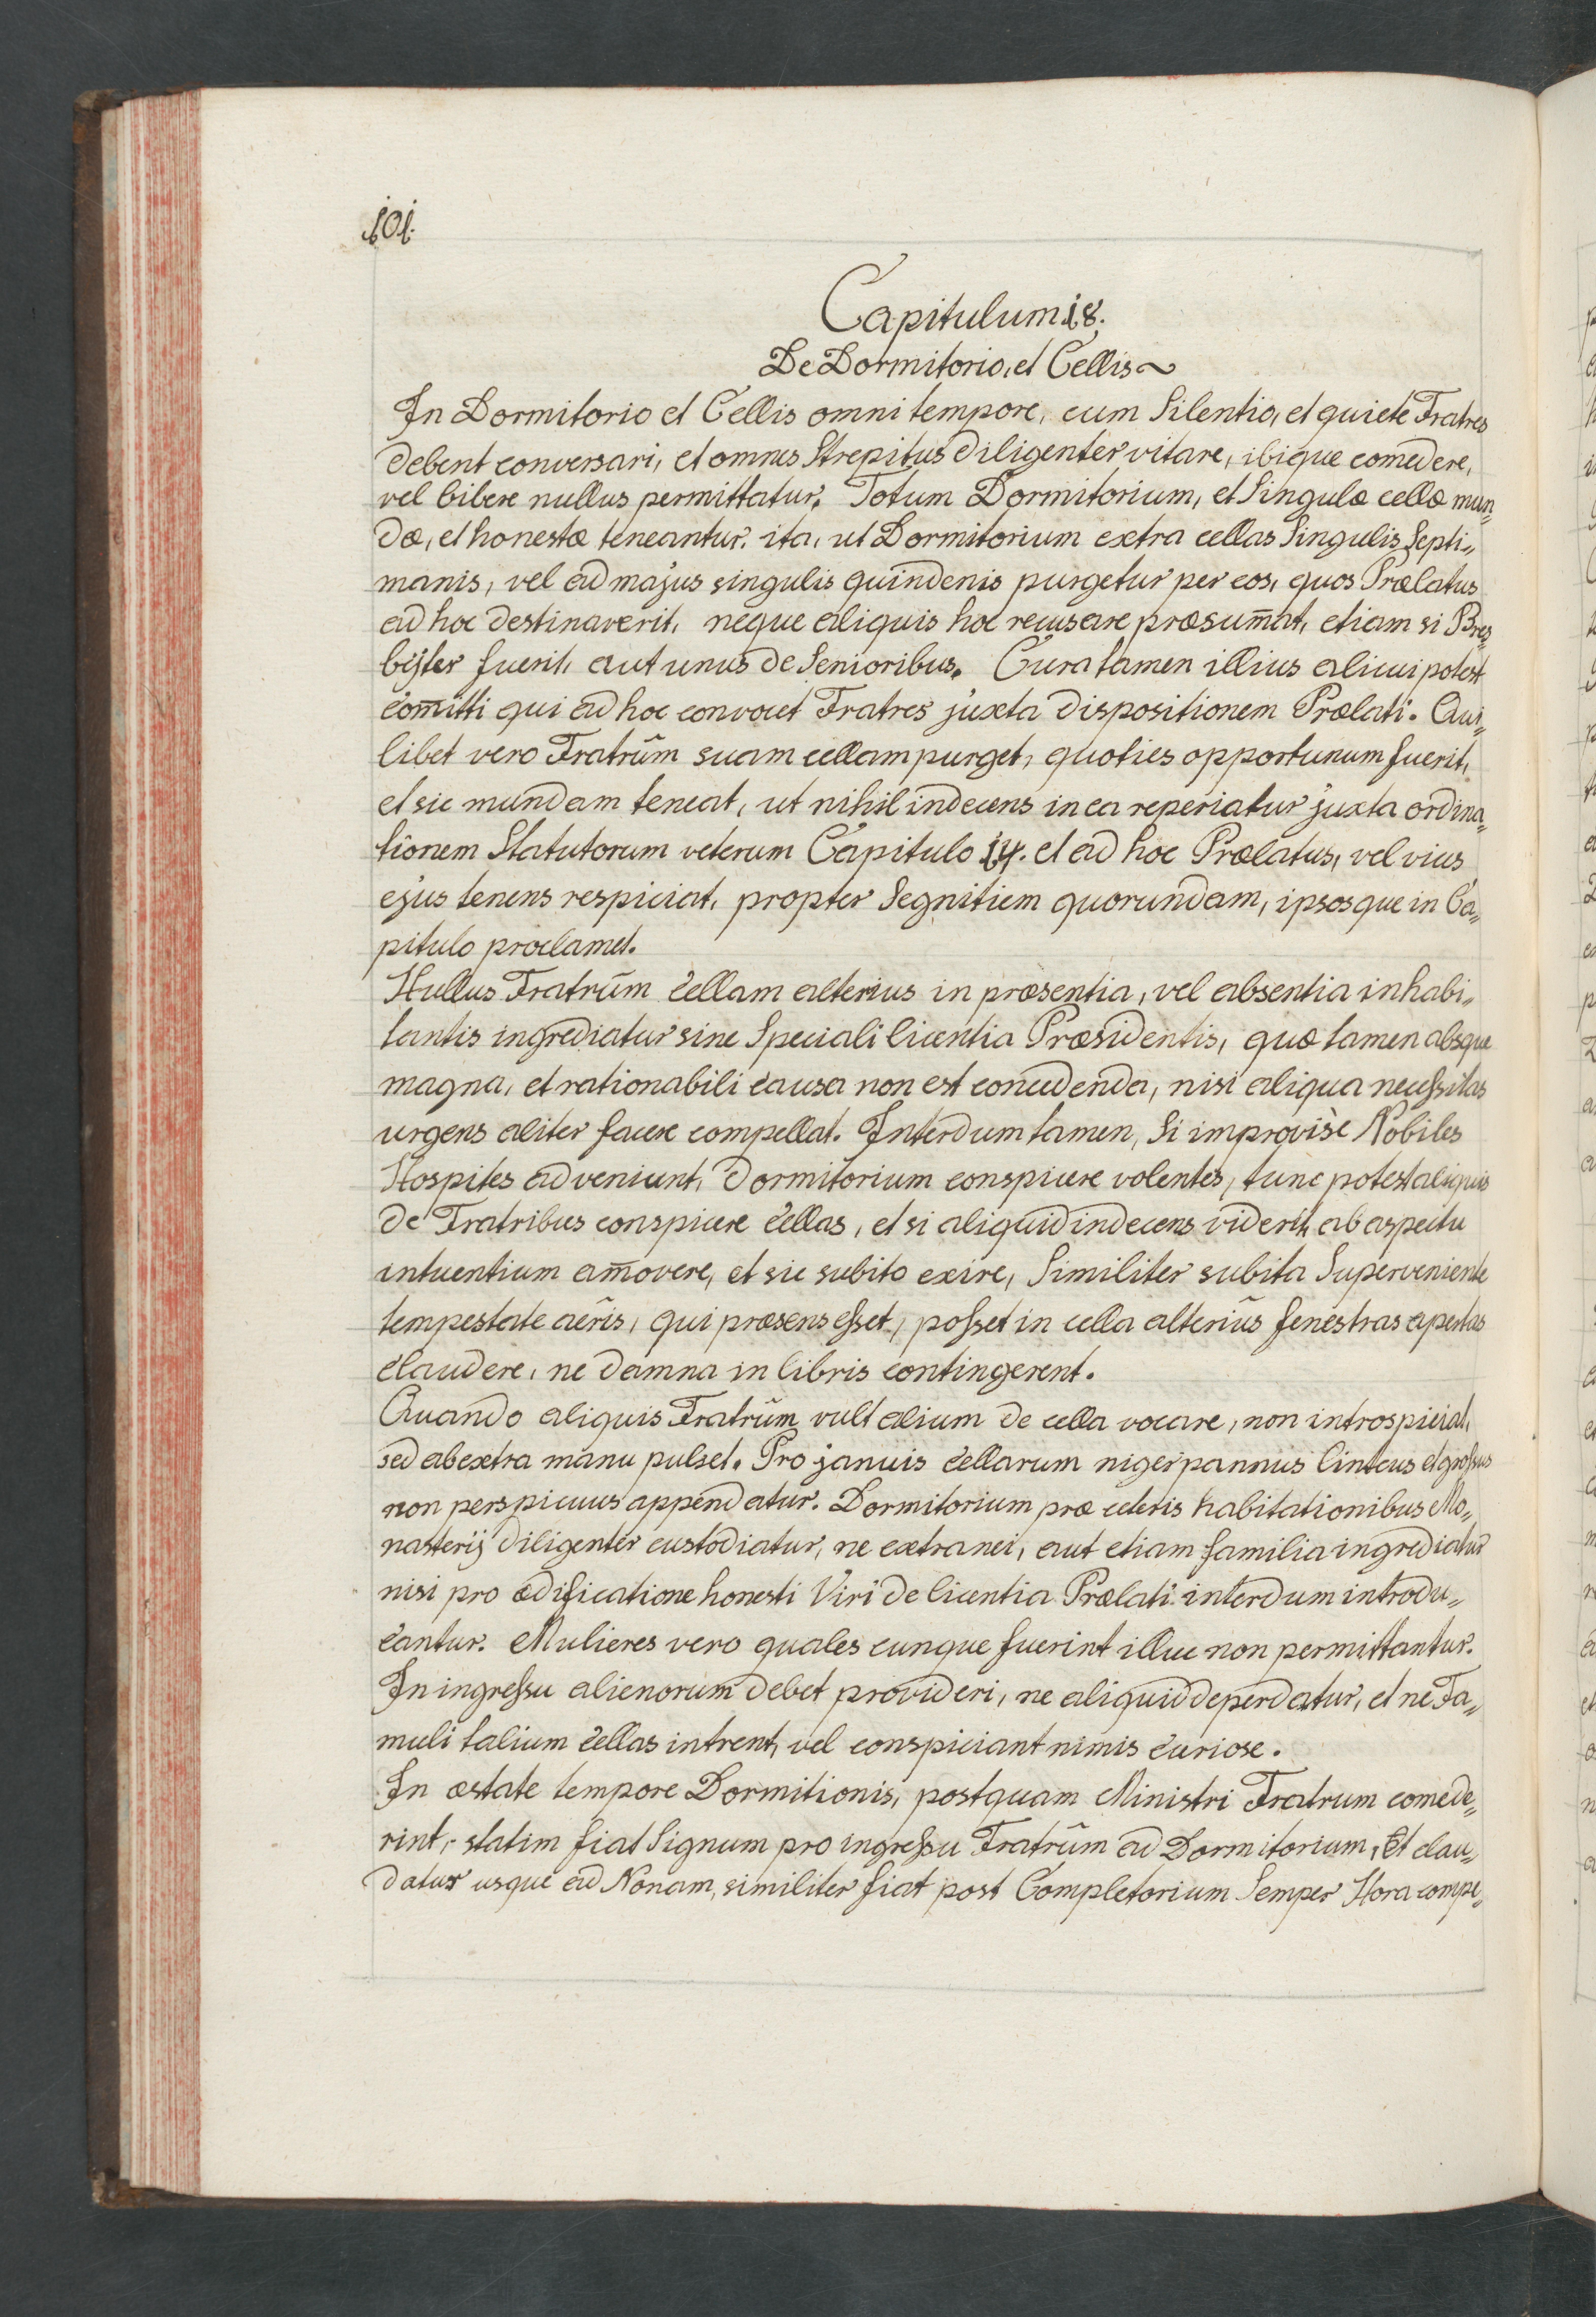 101.
Capitulum 18.
De Dormitorio, et Cellis~
In Dormitorio et Cellis omni tempore, cum Silentio, et quiete Fratres
debent conversari, et omnes Strepitus diligenter vitare, ibique comedere,
vel bibere nullus permittatur. Totum Dormitorium, et Singulæ cellæ mun„
dæ, et honestæ teneantur. ita, ut Dormitorium extra cellas Singulis Septi„
manis, vel ad majus singulis quindenis purgetur per eos, quos Prælatus
ad hoc destinaverit, neque aliquis hoc recusare præsum̄at, etiam si Pres„
bijter fuerit, aut unus de Senioribus. Cura tamen illius alicui potest
com̄itti qui ad hoc convocet Fratres juxta dispositionem Prælati. Qui„
libet vero Fratrũm suam cellam purget, quoties opportunum fuerit,
et sic mundam teneat, ut nihil indecens in ea reperiatur juxta ordina„
tionem Statutorum veterum Capitulo 14. et ad hoc Prælatus, vel vices
ejus tenens respiciat, propter Segnitiem quorundam, ipsosque in Ca„
pitulo proclamet.
Nullus Fratrũm cellam alterius in præsentia, vel absentia inhabi„
tantis ingrediatur sine Speciali licentia Præsidentis, quæ tamen absque
magna, et rationabili causa non est concedenda, nisi aliqua necessitas
urgens aliter facere compellat. Interdum tamen, Si improvisè Nobiles
Hospites adveniunt, dormitorium conspicere volentes, tunc potest aliquis
de Fratribus conspicere cellas, et si aliquid indecens viderit, ab aspectu
intuentium am̄overe, et sic subito exire, Similiter subita Superveniente
tempestate aëris, qui præsens esset, posset in cella alteriũs fenestras apertas
claudere, ne damna in libris contingerent.
Quando aliquis Fratrũm vult alium de cella vocare, non introspiciat,
sed ab extra manu pulset. Pro januis cellarum niger pannus linteus et grossus
non perspicuus appendatur. Dormitorium præ ceteris habitationibus Mo„
nasterij diligenter custodiatur, ne extranei, aut etiam familia ingrediatur
nisi pro ædificatione honesti Viri de licentia Prælati interdum introdu„
cantur. Mulieres vero quales cunque fuerint illuc non permittantur.
In ingressu alienorum debet provideri, ne aliquid deperdatur, et ne Fa„
muli talium cellas intrent, vel conspiciant nimis curiose.
In æstate tempore Dormitionis, postquam Ministri Fratrum comede„
rint, statim fiat Signum pro ingressu Fratrũm ad Dormitorium, Et clau„
datur usque ad Nonam, similiter fiat post Completorium Semper Hora compe„